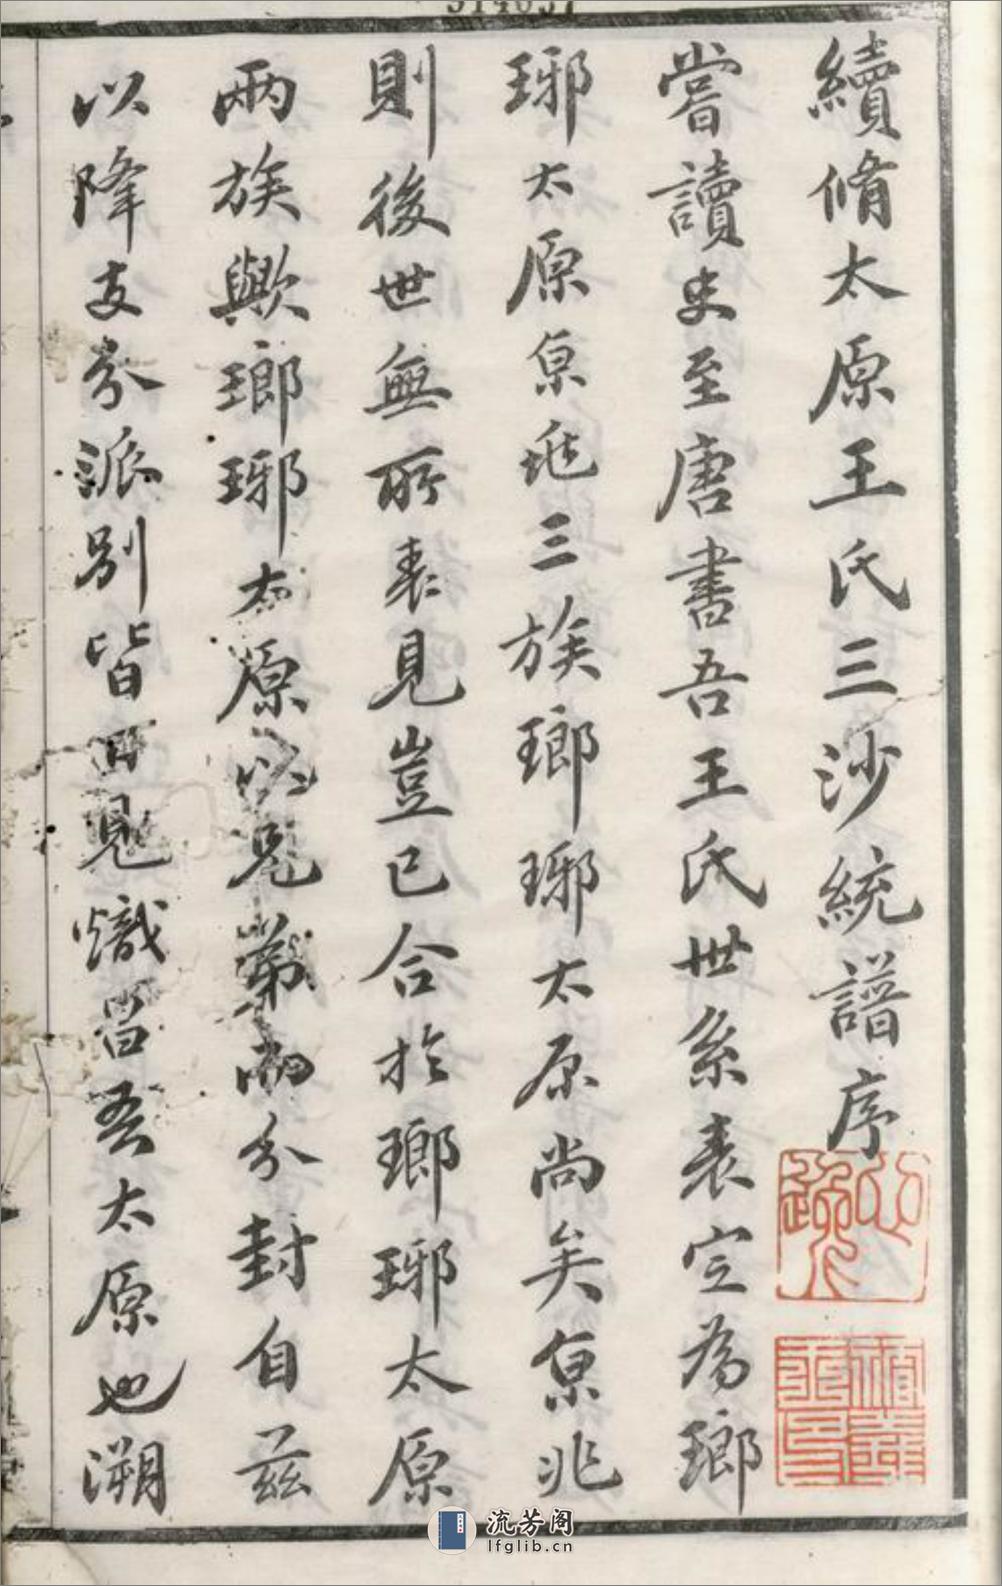 續脩太原王氏三沙統譜序
嘗讀史至唐書吾王氏世系表定為瑯
琊太原京兆三族瑯琊太原尚矣京兆
則後世無所表見豈已合於瑯琊太原
兩族歟瑯琊太原以兄弟而分封自茲
以降支分派別皆見熾昌吾太原也溯
流芳阁
lfglib.cn